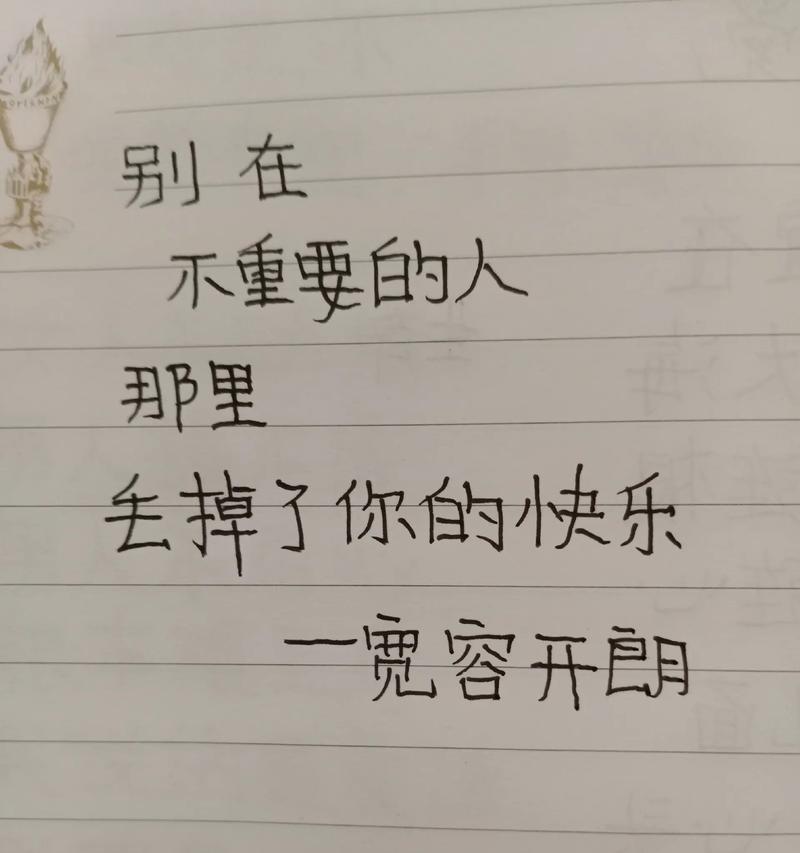 别在
不重要的人
那里
丢掉了你的快乐
一宽容开朗